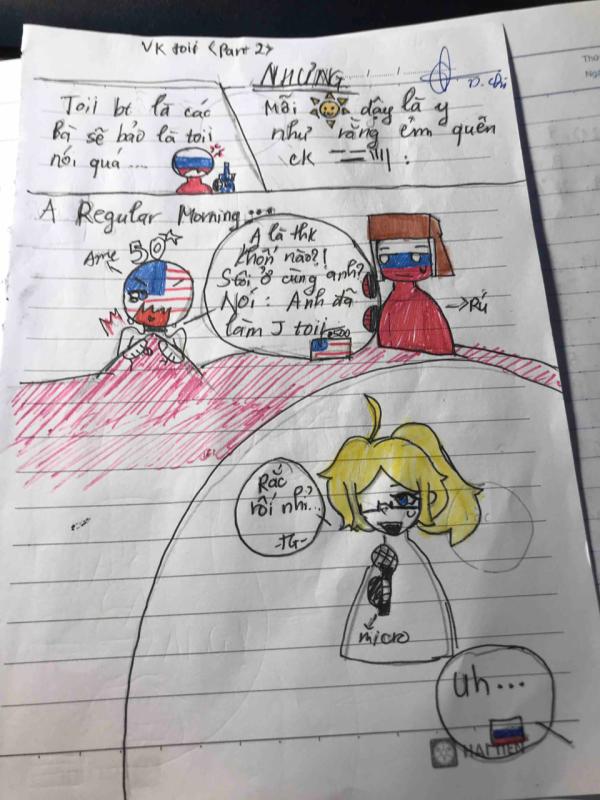 VK toii <Part 2>
NHƯNG
D. Chi
Toii bt là các
bà sẽ bảo là toii
nói quá...
Mỗi dậy là y
như rằng ểm quên
ck :
A Regular Morning...
50
Ame
A là thk
khốn nào?!
Stôi ở cùng anh?
Nói: Anh đã
làm J toii
Rú
Rắc
rối nhỉ...
-TG-
micro
Uh...
HẢI TIẾN